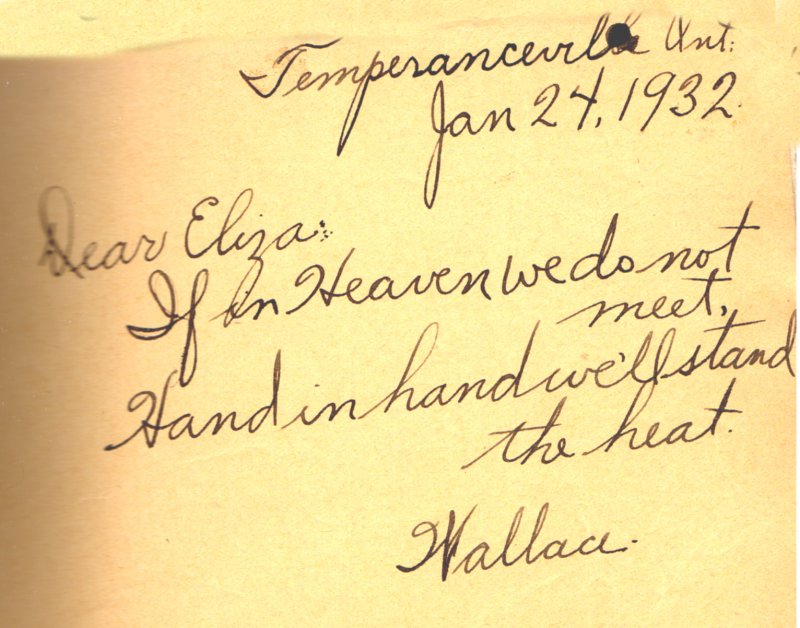 Temperanceville Ont.
Jan 24, 1932.
Dear Eliza:
If in Heaven we do not
meet,
Hand in hand we'll stand
the heat.
Wallace.